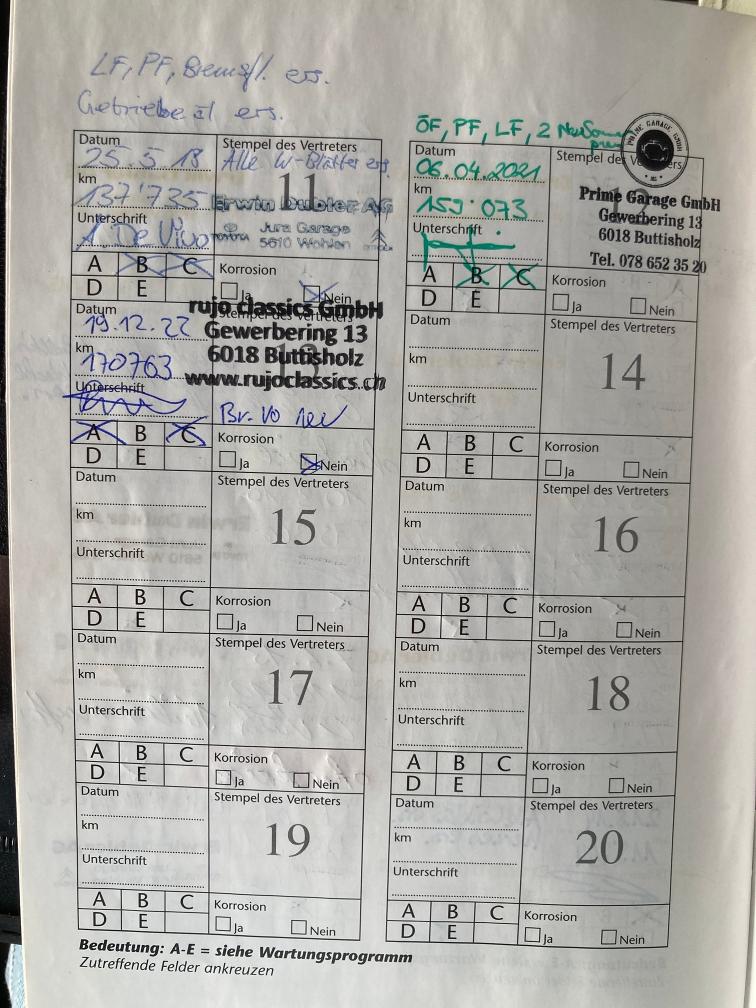 LF, PF, Bremsfl. ers.
Getriebeöl ers.
Datum
25.5.18
km
137'735
Unterschrift
A. De Vivo
Stempel des Vertreters
Alle W-Blätter ers.
11
Erwin Dubler AG
Jura Garage
5610 Wohlen
A B C
D E
Korrosion
Ja Nein
ÖF, PF, LF, 2
Datum
06.04.2021
km
159'073
Unterschrift
Stempel des Vertreters
PRIME GARAGE GMBH
Prime Garage GmbH
Gewerbering 13
6018 Buttisholz
Tel. 078 652 35 20
A B C
D E
Korrosion
Ja Nein
Datum
19.12.22
km
170763
Unterschrift
Stempel des Vertreters
13
rujo classics GmbH
Gewerbering 13
6018 Buttisholz
www.rujoclassics.ch
Br. Vo neu
A B C
D E
Korrosion
Ja Nein
Datum
km
Unterschrift
Stempel des Vertreters
14
A B C
D E
Korrosion
Ja Nein
Datum
km
Unterschrift
Stempel des Vertreters
15
A B C
D E
Korrosion
Ja Nein
Datum
km
Unterschrift
Stempel des Vertreters
16
A B C
D E
Korrosion
Ja Nein
Datum
km
Unterschrift
Stempel des Vertreters
17
A B C
D E
Korrosion
Ja Nein
Datum
km
Unterschrift
Stempel des Vertreters
18
A B C
D E
Korrosion
Ja Nein
Datum
km
Unterschrift
Stempel des Vertreters
19
A B C
D E
Korrosion
Ja Nein
Datum
km
Unterschrift
Stempel des Vertreters
20
A B C
D E
Korrosion
Ja Nein
Bedeutung: A-E = siehe Wartungsprogramm
Zutreffende Felder ankreuzen